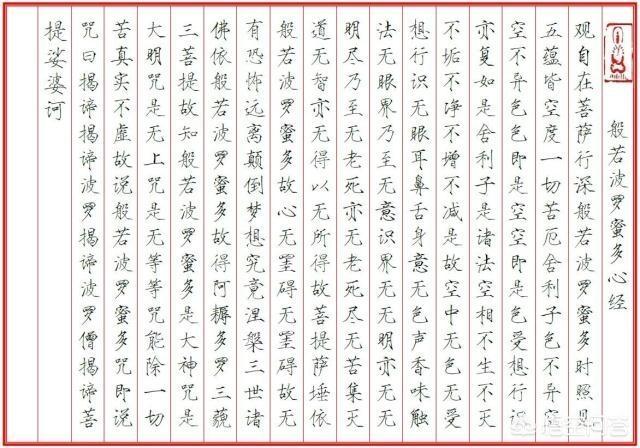 般若波罗蜜多心经
观自在菩萨行深般若波罗蜜多时照见
五蕴皆空度一切苦厄舍利子色不异空
空不异色色即是空空即是色受想行识
亦复如是舍利子是诸法空相不生不灭
不垢不净不增不减是故空中无色无受
想行识无眼耳鼻舌身意无色声香味触
法无眼界乃至无意识界无无明亦无无
明尽乃至无老死亦无老死尽无苦集灭
道无智亦无得以无所得故菩提萨埵依
般若波罗蜜多故心无罣碍无罣碍故无
有恐怖远离颠倒梦想究竟涅槃三世诸
佛依般若波罗蜜多故得阿耨多罗三藐
三菩提故知般若波罗蜜多是大神咒是
大明咒是无上咒是无等等咒能除一切
苦真实不虚故说般若波罗蜜多咒即说
咒曰揭谛揭谛波罗揭谛波罗僧揭谛菩
提娑婆诃